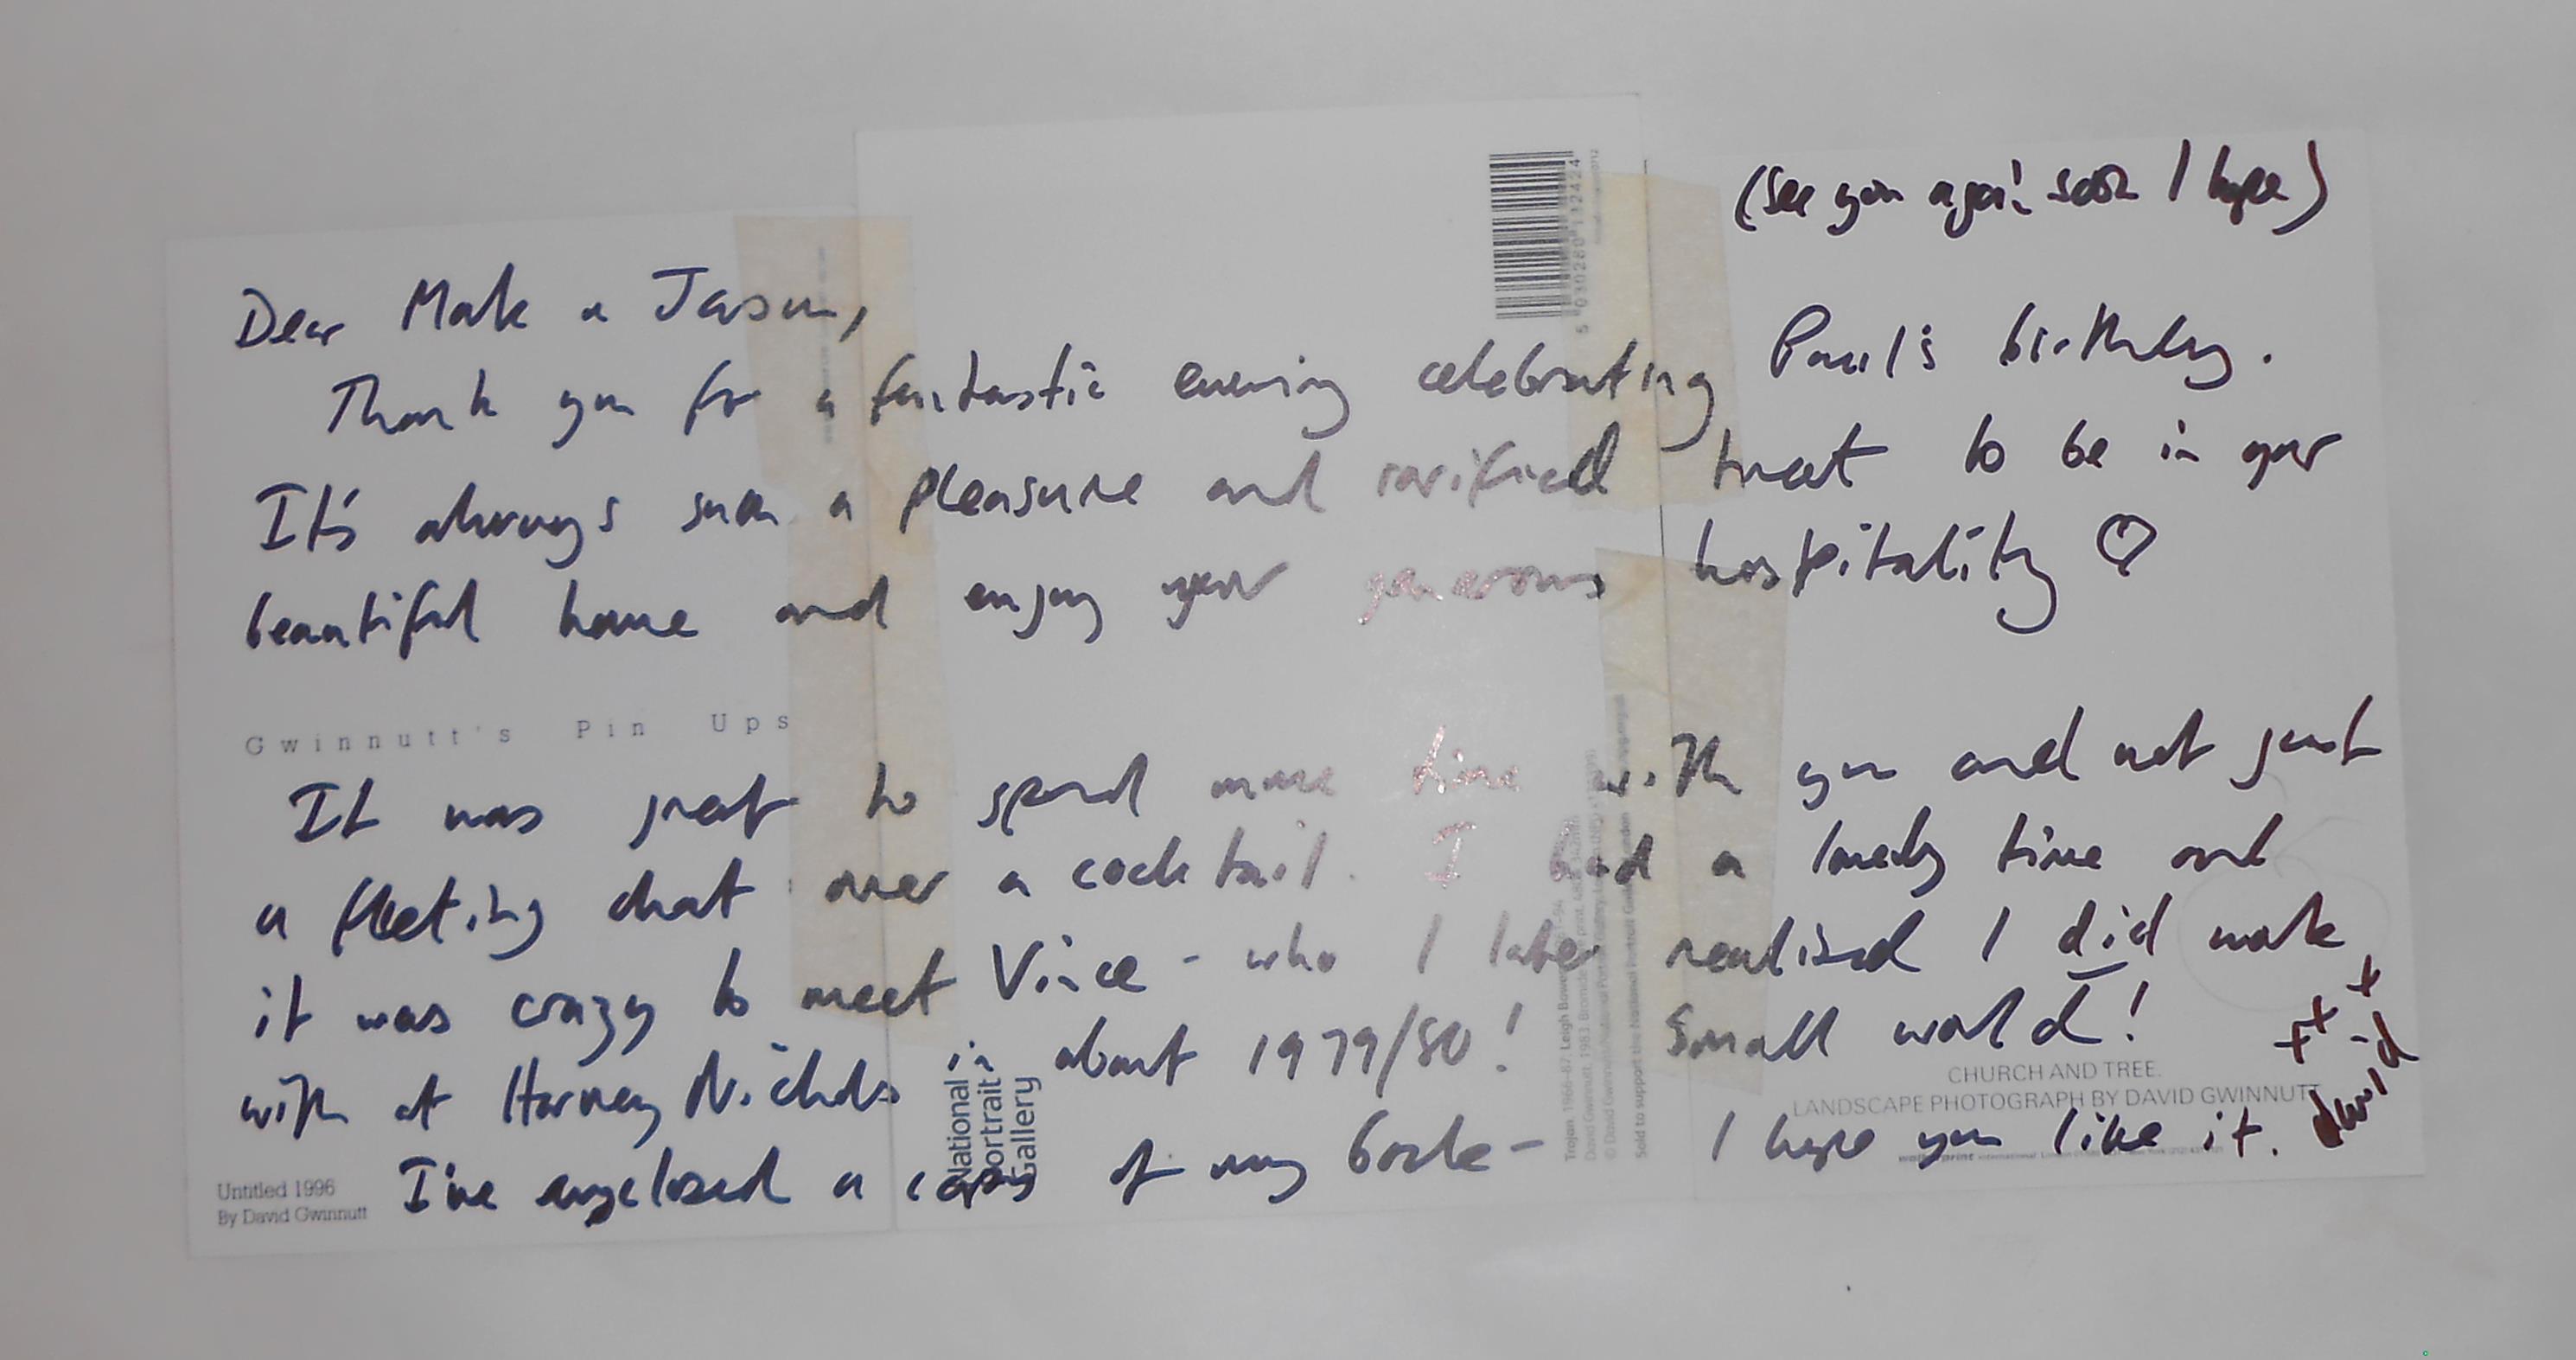 (See you again soon I hope)
Dear Mark & Jason,
Thank you for a fantastic evening celebrating Paul's birthday.
It's always such a pleasure and rarified treat to be in your
beautiful home and enjoy your generous hospitality ♡
Gwinnutt's Pin Ups
It was great to spend more time with you and not just
a fleeting chat over a cocktail. I had a lovely time and
it was crazy to meet Vince - who I later realised I did work
with at Harvey Nichols in about 1979/80! Small world!
I've enclosed a copy of my book - I hope you like it.
David
x x x
Untitled 1996
By David Gwinnutt
National
Portrait
Gallery
5 030280 112424
Sold to support the National Portrait Gallery, London
CHURCH AND TREE.
LANDSCAPE PHOTOGRAPH BY DAVID GWINNUTT